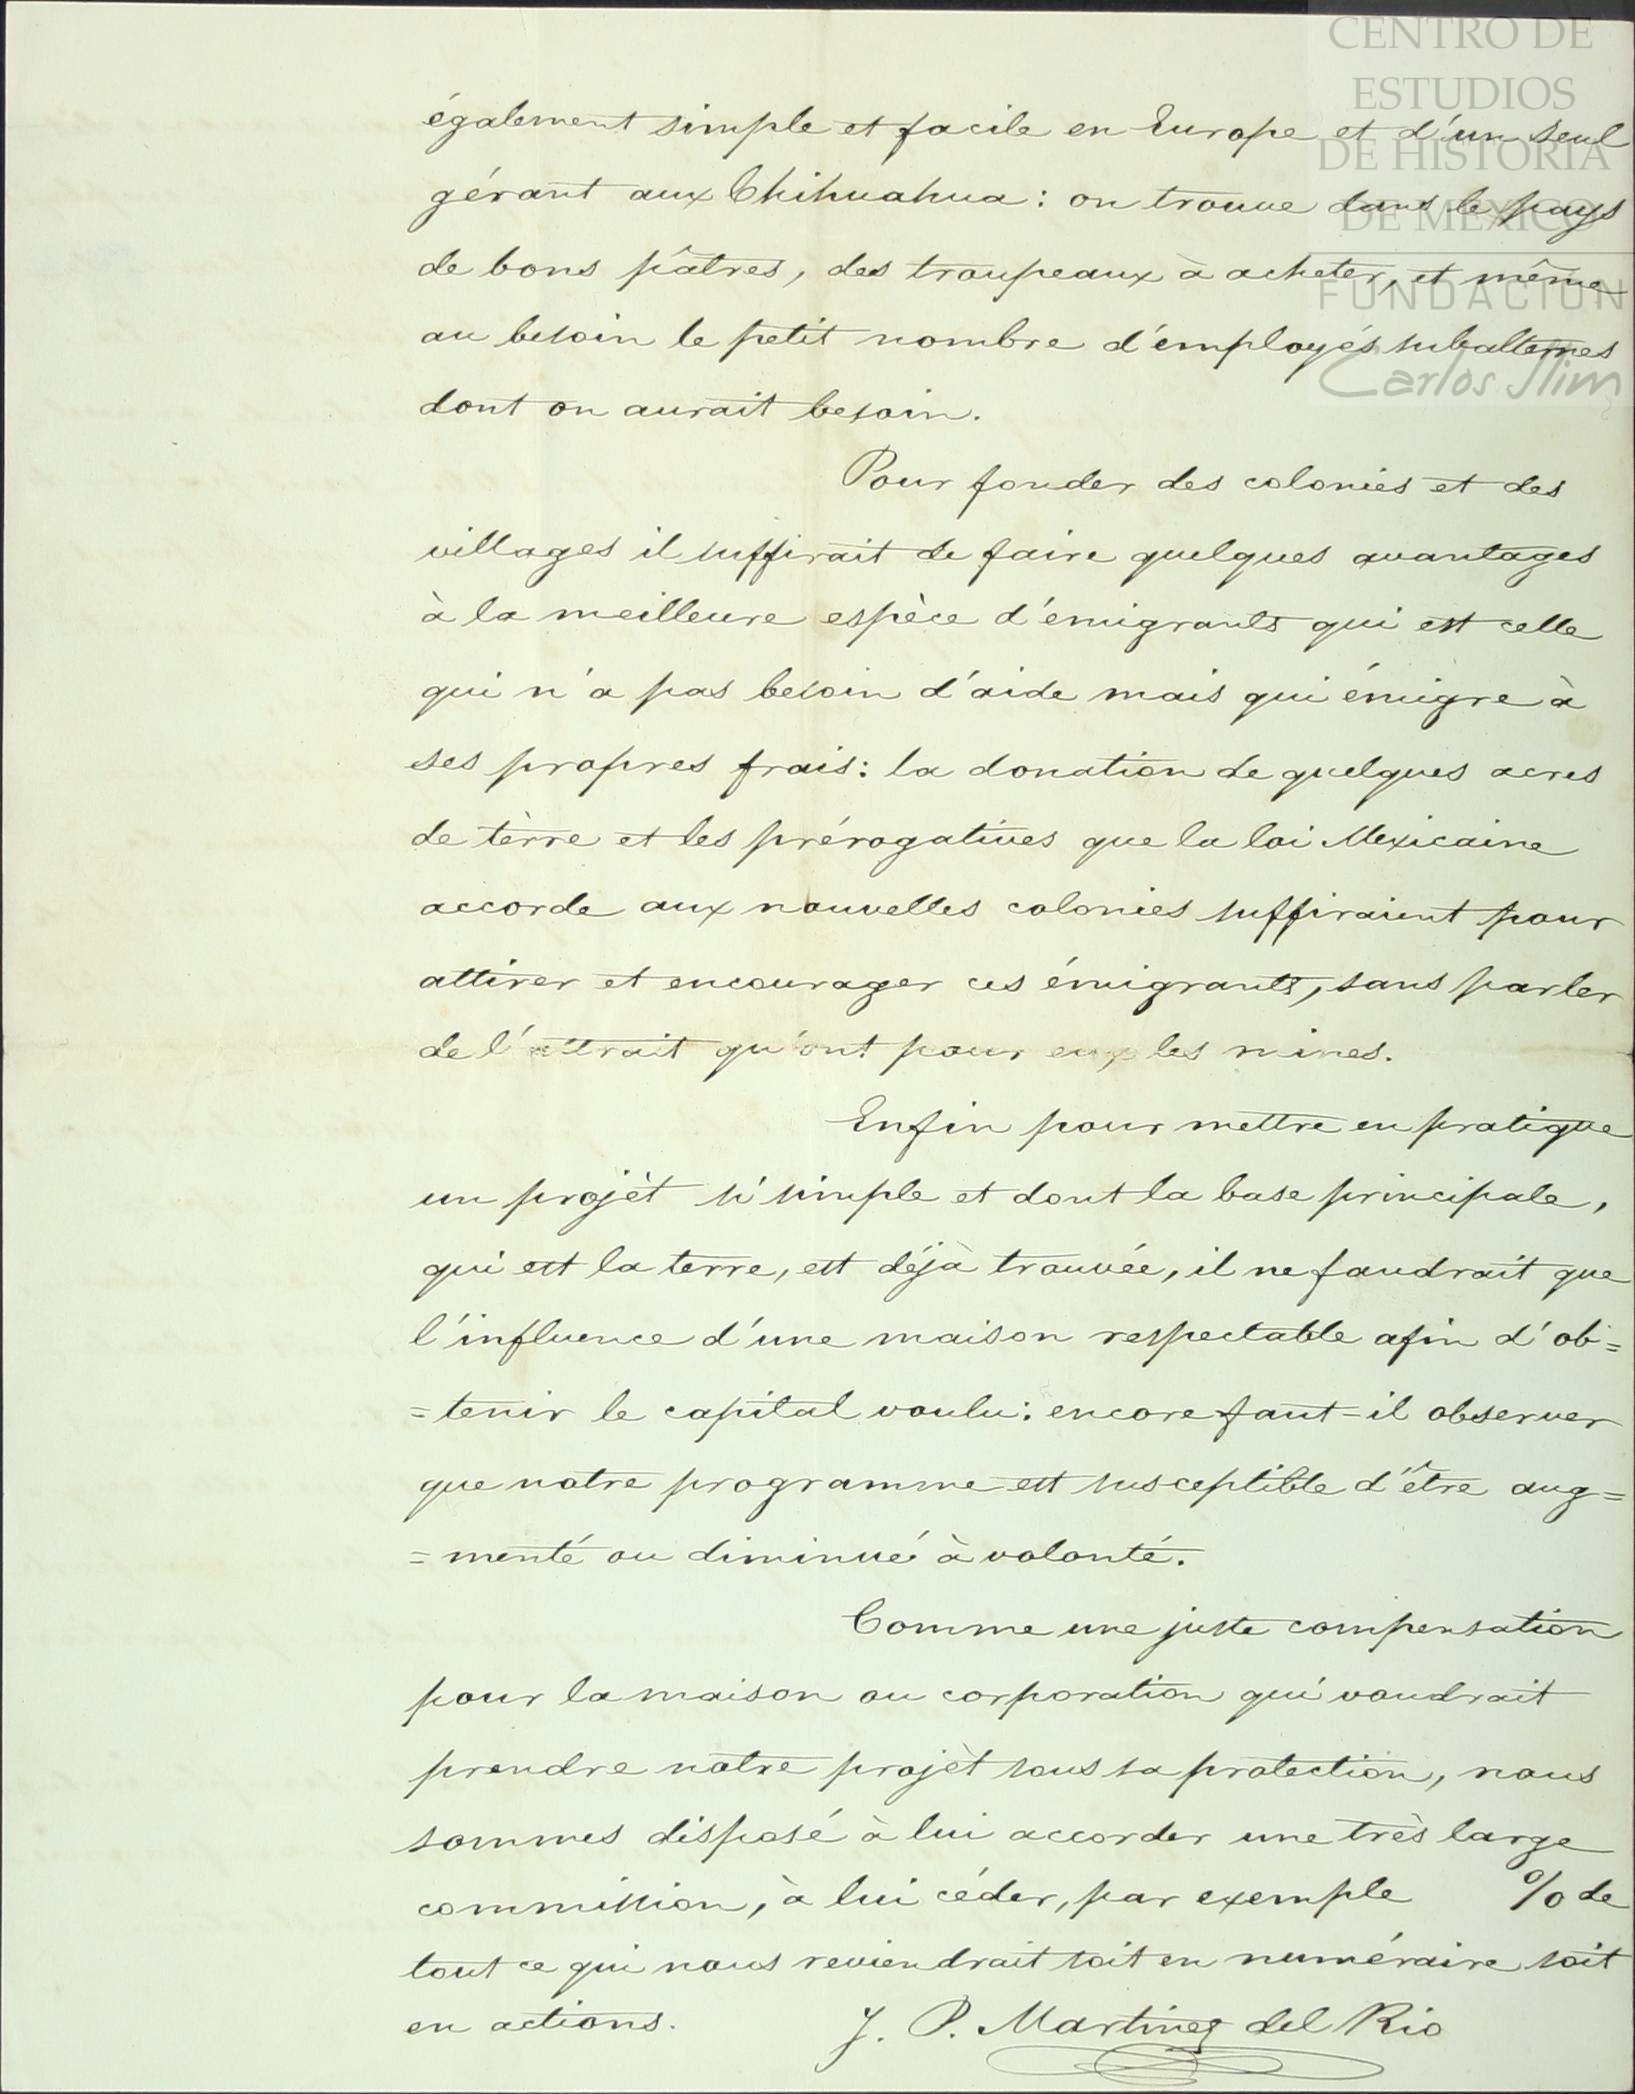 CENTRO DE
ESTUDIOS
DE HISTORIA
DE MÉXICO
FUNDACIÓN
Carlos Slim
également simple et facile en Europe et d'un seul
gérant aux Chihuahua : on trouve dans le pays
de bons pâtres, des troupeaux à acheter, et même
au besoin le petit nombre d'employés subalternes
dont on aurait besoin.
Pour fonder des colonies et des
villages il suffirait de faire quelques avantages
à la meilleure espèce d'émigrants qui est celle
qui n'a pas besoin d'aide mais qui émigre à
ses propres frais : la donation de quelques acres
de tèrre et les prérogatives que la loi Mexicaine
accorde aux nouvelles colonies suffiraient pour
attirer et encourager ces émigrants, sans parler
de l'attrait qu'ont pour eux les mines.
Enfin pour mettre en pratique
un projèt si simple et dont la base principale,
qui est la terre, est déjà trouvée, il ne faudrait que
l'influence d'une maison respectable afin d'ob=
=tenir le capital voulu : encore faut-il observer
que notre programme est susceptible d'être aug=
=menté ou diminué à volonté.
Comme une juste compensation
pour la maison ou corporation qui voudrait
prendre notre projèt sous sa protection, nous
sommes disposé à lui accorder une très large
commission, à lui céder, par exemple % de
tout ce qui nous reviendrait soit en numéraire soit
en actions.
J. P. Martinez del Rio